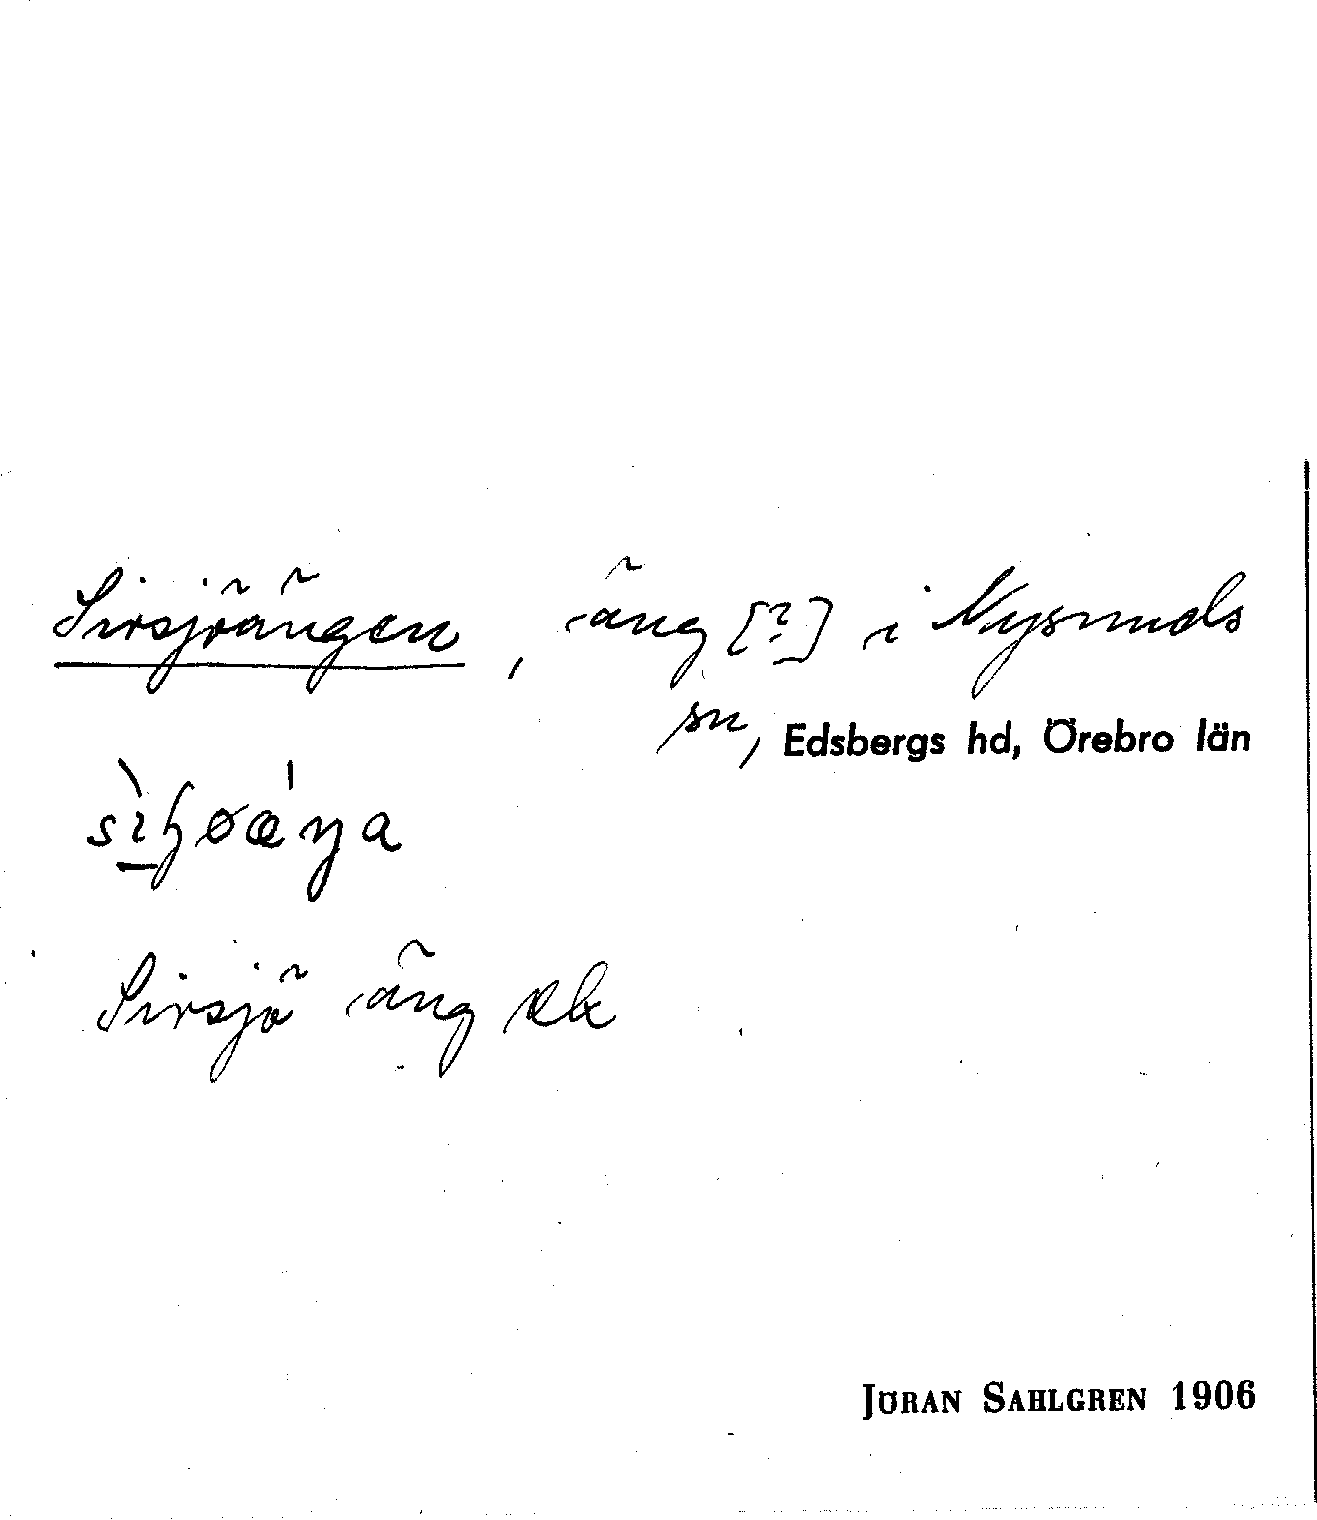 Sirsjöängen, äng [?] i Nysunds
sn, Edsbergs hd, Örebro län
Sirsjö äng ek
JÖRAN SAHLGREN 1906